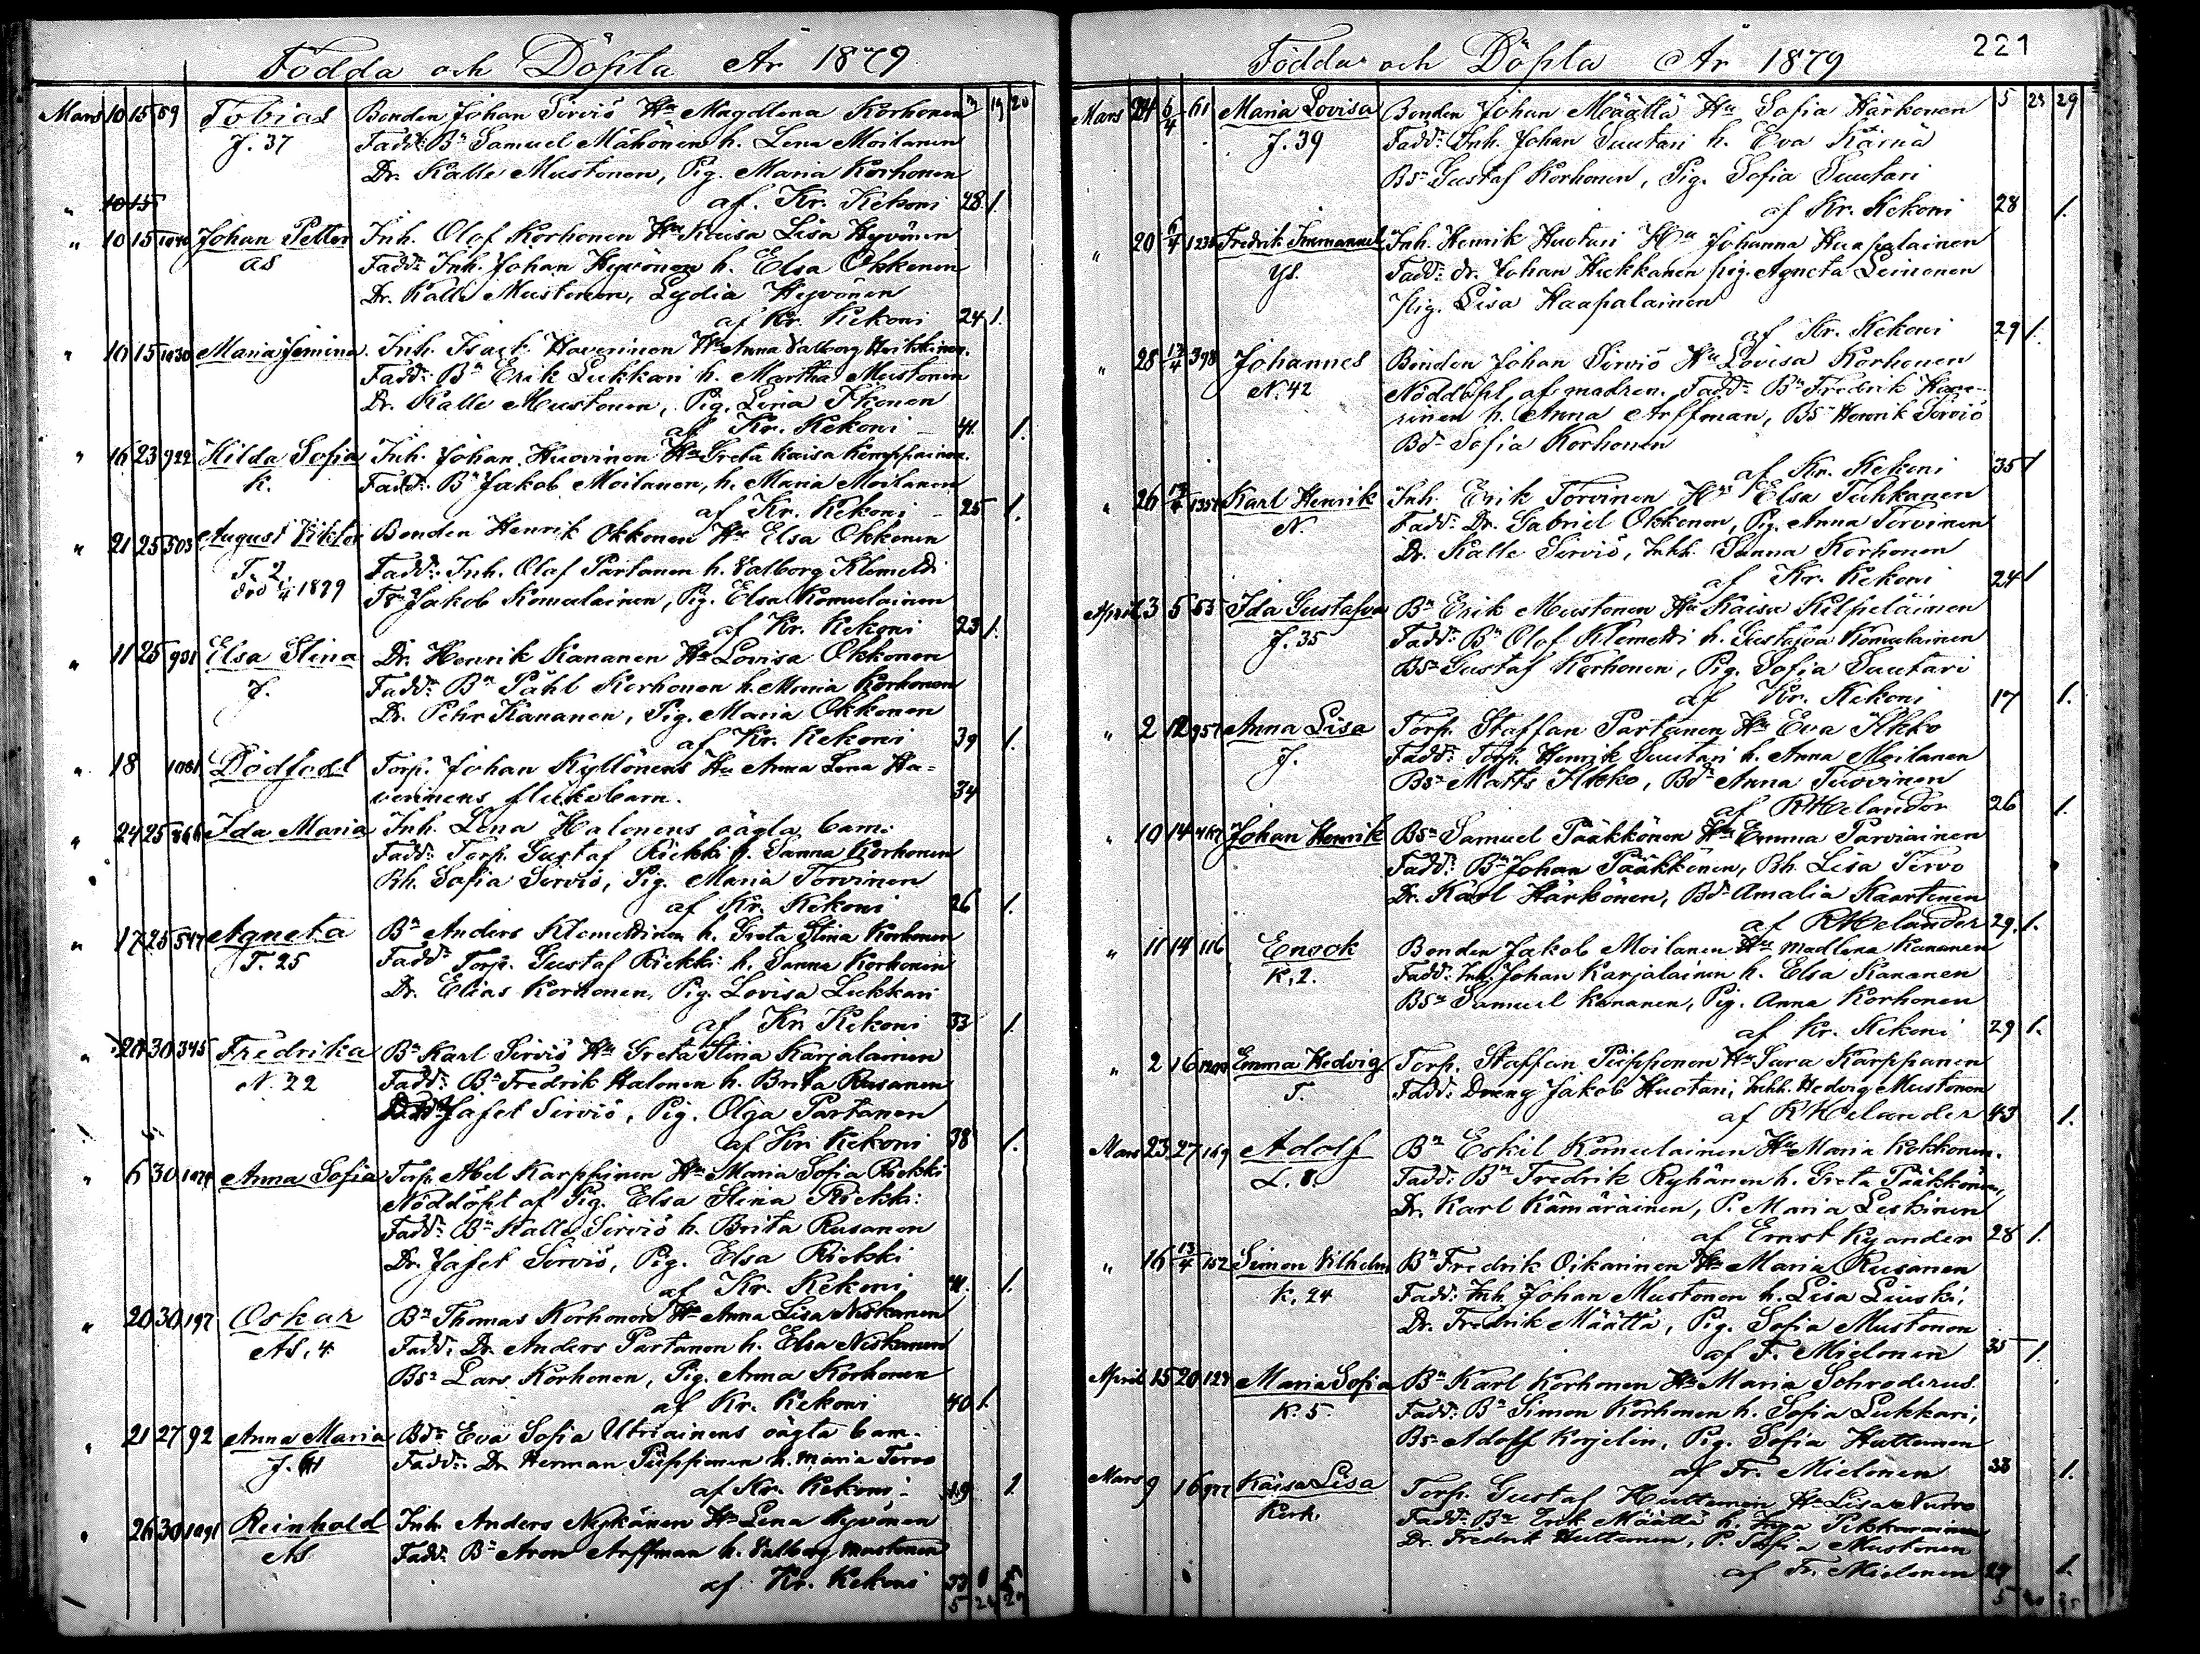 Födda och Döpta År 1879
3 19 20
Mars 10 15 59 Tobias Bonden Johan Servis Hu Magdlena Korhonen
J. 37 Fadd: Bn Samuel Mähönen h. Lena Moilanen
Dr. Kalle Mustonen, Pig. Maria Korhonen
" 10 15 af. Kr. Kekoni 28 1.
" 10 15 Johan Petter Inh. Olof Korhonen Hu Kaisa Lisa Hyvönen
As Fadd: Inh. Johan Hyvönen h. Elsa Okkonen
Dr. Kalle Mustonen, Lydia Hyvönen
af Kr. Kekoni 24 1.
" 10 15 1030 Maria Jemina Inh. Isack Haverinen Hu Anna Valborg Heikkinen.
Fadd: Bn Erik Lukkari h. Martha Mustonen
Dr. Kalle Mustonen, Pig. Lena Ikonen
af Kr. Kekoni 41. 1.
" 16 23 922 Hilda Sofia Inh. Johan Huovinen Hu Greta Kaisa Kemppainen.
K. Fadd: Bn Jakob Moilanen, h. Maria Moilanen
af Kr. Kekoni 25 1.
" 21 25 503 August Viktor Bonden Henrik Okkonen Hu Elsa Okkonen
T. 2 Fadd: Inh. Olof Partanen h. Valborg Klemetti
död 1879 Jakob Komulainen, Pig. Elsa Komulainen
af Kr. Kekoni 23 1.
" 11 25 931 Elsa Stina Dr. Henrik Kananen Hu Lovisa Okkonen
J. Fadd: Bn Påhl Korhonen h. Maria Korhonen
Dr. Pehr Kananen, Pig. Maria Okkonen
af Kr. Kekoni 39 1.
" 18 1081 Dödfödt Torp. Johan Kyllönens Hu Anna Lena Ha-
verinens flickebarn. 34
" 24 25 866 Ida Maria Inh. Lena Halonens oägta barn.
Fadd: Torp. Gustaf Riekki h. Sanna Korhonen
Bh. Sofia Servis, Pig. Maria Torvinen
af Kr. Kekoni 26 1.
" 17 25 547 Agneta Bn Anders Klemettinen h. Greta Stina Korhonen
T. 25 Fadd: Torp. Gustaf Riekki h. Sanna Korhonen
Dr. Elias Korhonen, Pig. Lovisa Lukkari
af Kr. Kekoni 33 1.
" 20 30 345 Fredrika Bn Karl Servis Hu Greta Stina Karjalainen
N. 22 Fadd: Bn Fredrik Halonen h. Brita Rusanen
Jafet Servis, Pig. Olga Partanen
af Kr. Kekoni 38 1.
" 6 30 Anna Sofia Torp. Abel Karppinen Hu Maria Sofia Riekki
Nöddöpt af Pig. Elsa Stina Riekki.
Fadd: Bn Kalle Servis h. Brita Rusanen
Dr. Jafet Servis, Pig. Elsa Riekki
af Kr. Kekoni 41. 1.
" 20 30 197 Oskar Bn Thomas Korhonen Hu Anna Lisa Niskanen
As, 4. Fadd: Dr. Anders Partanen h. Elsa Niskanen
Bsn Lars Korhonen, Pig. Anna Korhonen
af Kr. Kekoni 40 1.
" 21 27 92 Anna Maria Bdr Eva Sofia Utriainens oägta barn.
J. 41 Fadd: Dr. Herman Piipponen h. Maria Tervo
af Kr. Kekoni. 19 1.
" 26 30 1091 Reinhold Inh. Anders Nykänen Hu Lena Hyvönen
As Fadd: Bn Aron Arffman h. Valborg Mustonen
af Kr. Kekoni
221
Födda och Döpta År 1879
5 23 29
Mars 24 6/4 61 Maria Lovisa Bonden Johan Määttä Hu Sofia Härkonen
J. 39 Fadd: Inh. Johan Suutari h. Eva Kärnä
Bsn Gustaf Korhonen, Pig. Sofia Suutari
af Kr. Kekoni 28 1.
" 20 6/4 Fredrik Immanuel Inh. Henrik Huotari Hu Johanna Haapalainen
Ys. Fadd: dr. Johan Hukkanen pig. Agneta Leinonen
Pig. Lisa Haapalainen
af Kr. Kekoni 29 1.
" 28 13/4 398 Johannes Bonden Johan Servis Hu Lovisa Korhonen
N. 42 Nöddöpt af modren. Fadd: Bn Fredrik Have-
rinen h. Anna Arffman, Bsn Henrik Servis
Bdr Sofia Korhonen
af Kr. Kekoni 35 1
" 26 13/4 Karl Henrik Inh. Erik Torvinen Hu Elsa Tuhkanen
N. Fadd: Dr. Gabriel Okkonen, Pig. Anna Tervinen
Dr. Kalle Servis, Inhh. Sanna Korhonen
af Kr. Kekoni 24 1
April 3 5 53 Ida Gustafva Bn Erik Mustonen Hu Kaisa Kilpeläinen
J. 35 Fadd: Bn Olof Klemetti h. Gustafva Komulainen
Bsn Gustaf Korhonen, Pig. Sofia Suutari
af Kr. Kekoni 17 1.
" 2 12 957 Anna Lisa Torp. Staffan Partanen Hu Eva Ilkko
J. Fadd: Torp. Henrik Suutari h. Anna Moilanen
Bsn Matts Ilkko, Bdr Anna Tuovinen
af RHelander 26 1.
" 10 14 467 Johan Henrik Bsn Samuel Pääkkönen Hu Emma Parviainen
Fadd: Bn Johan Pääkkönen, Bh. Lisa Tervo
Dr. Karl Härkönen, Bdr Amalia Kaartinen
af RHelander 29. 1.
" 11 14 116 Enock Bonden Jakob Moilanen Hu Madlena Kananen
K, 2. Fadd: Inh. Johan Karjalainen h. Elsa Kananen
Bsn Samuel Kananen, Pig. Anna Korhonen
af Kr. Kekoni 29 1.
" 2 16 Emma Hedvig Torp. Staffan Piipponen Hu Sara Karppanen
T. Fadd: Dreng Jakob Huotari, Inhh. Hedvig Mustonen
af RHelander 43 1.
Mars 23 27 169 Adolf Bn Eskil Komulainen Hu Maria Kokkonen.
L. 8. Fadd: Bn Fredrik Ryhänen h. Greta Pääkkönen,
Dr. Karl Kämäräinen, P. Maria Leskinen
af Ernst Kyander 28 1.
" 16 13/4 152 Simon Vilhelm Bn Fredrik Oikarinen Hu Maria Rusanen
K, 24 Fadd: Inh. Johan Mustonen h. Lisa Liuski,
Dr. Fredrik Määttä, Pig. Sofia Mustonen
af F. Mielonen 35 1.
April 15 20 127 Maria Sofia Bn Karl Korhonen Hu Maria Schroderus.
K. 5. Fadd: Bn Simon Korhonen h. Sofia Lukkari,
Bs Adolf Korjelin, Pig. Sofia Huttunen
af Fr. Mielonen 33 1.
Mars 9 16 Kaisa Lisa Torp. Gustaf Huttunen Hu Lisa Turro
Kerk. Fadd: Bn Erik Määttä h. Pikkarainen
Dr. Fredrik Huttunen, P. Sofia Mustonen
af Fr. Mielonen 1.